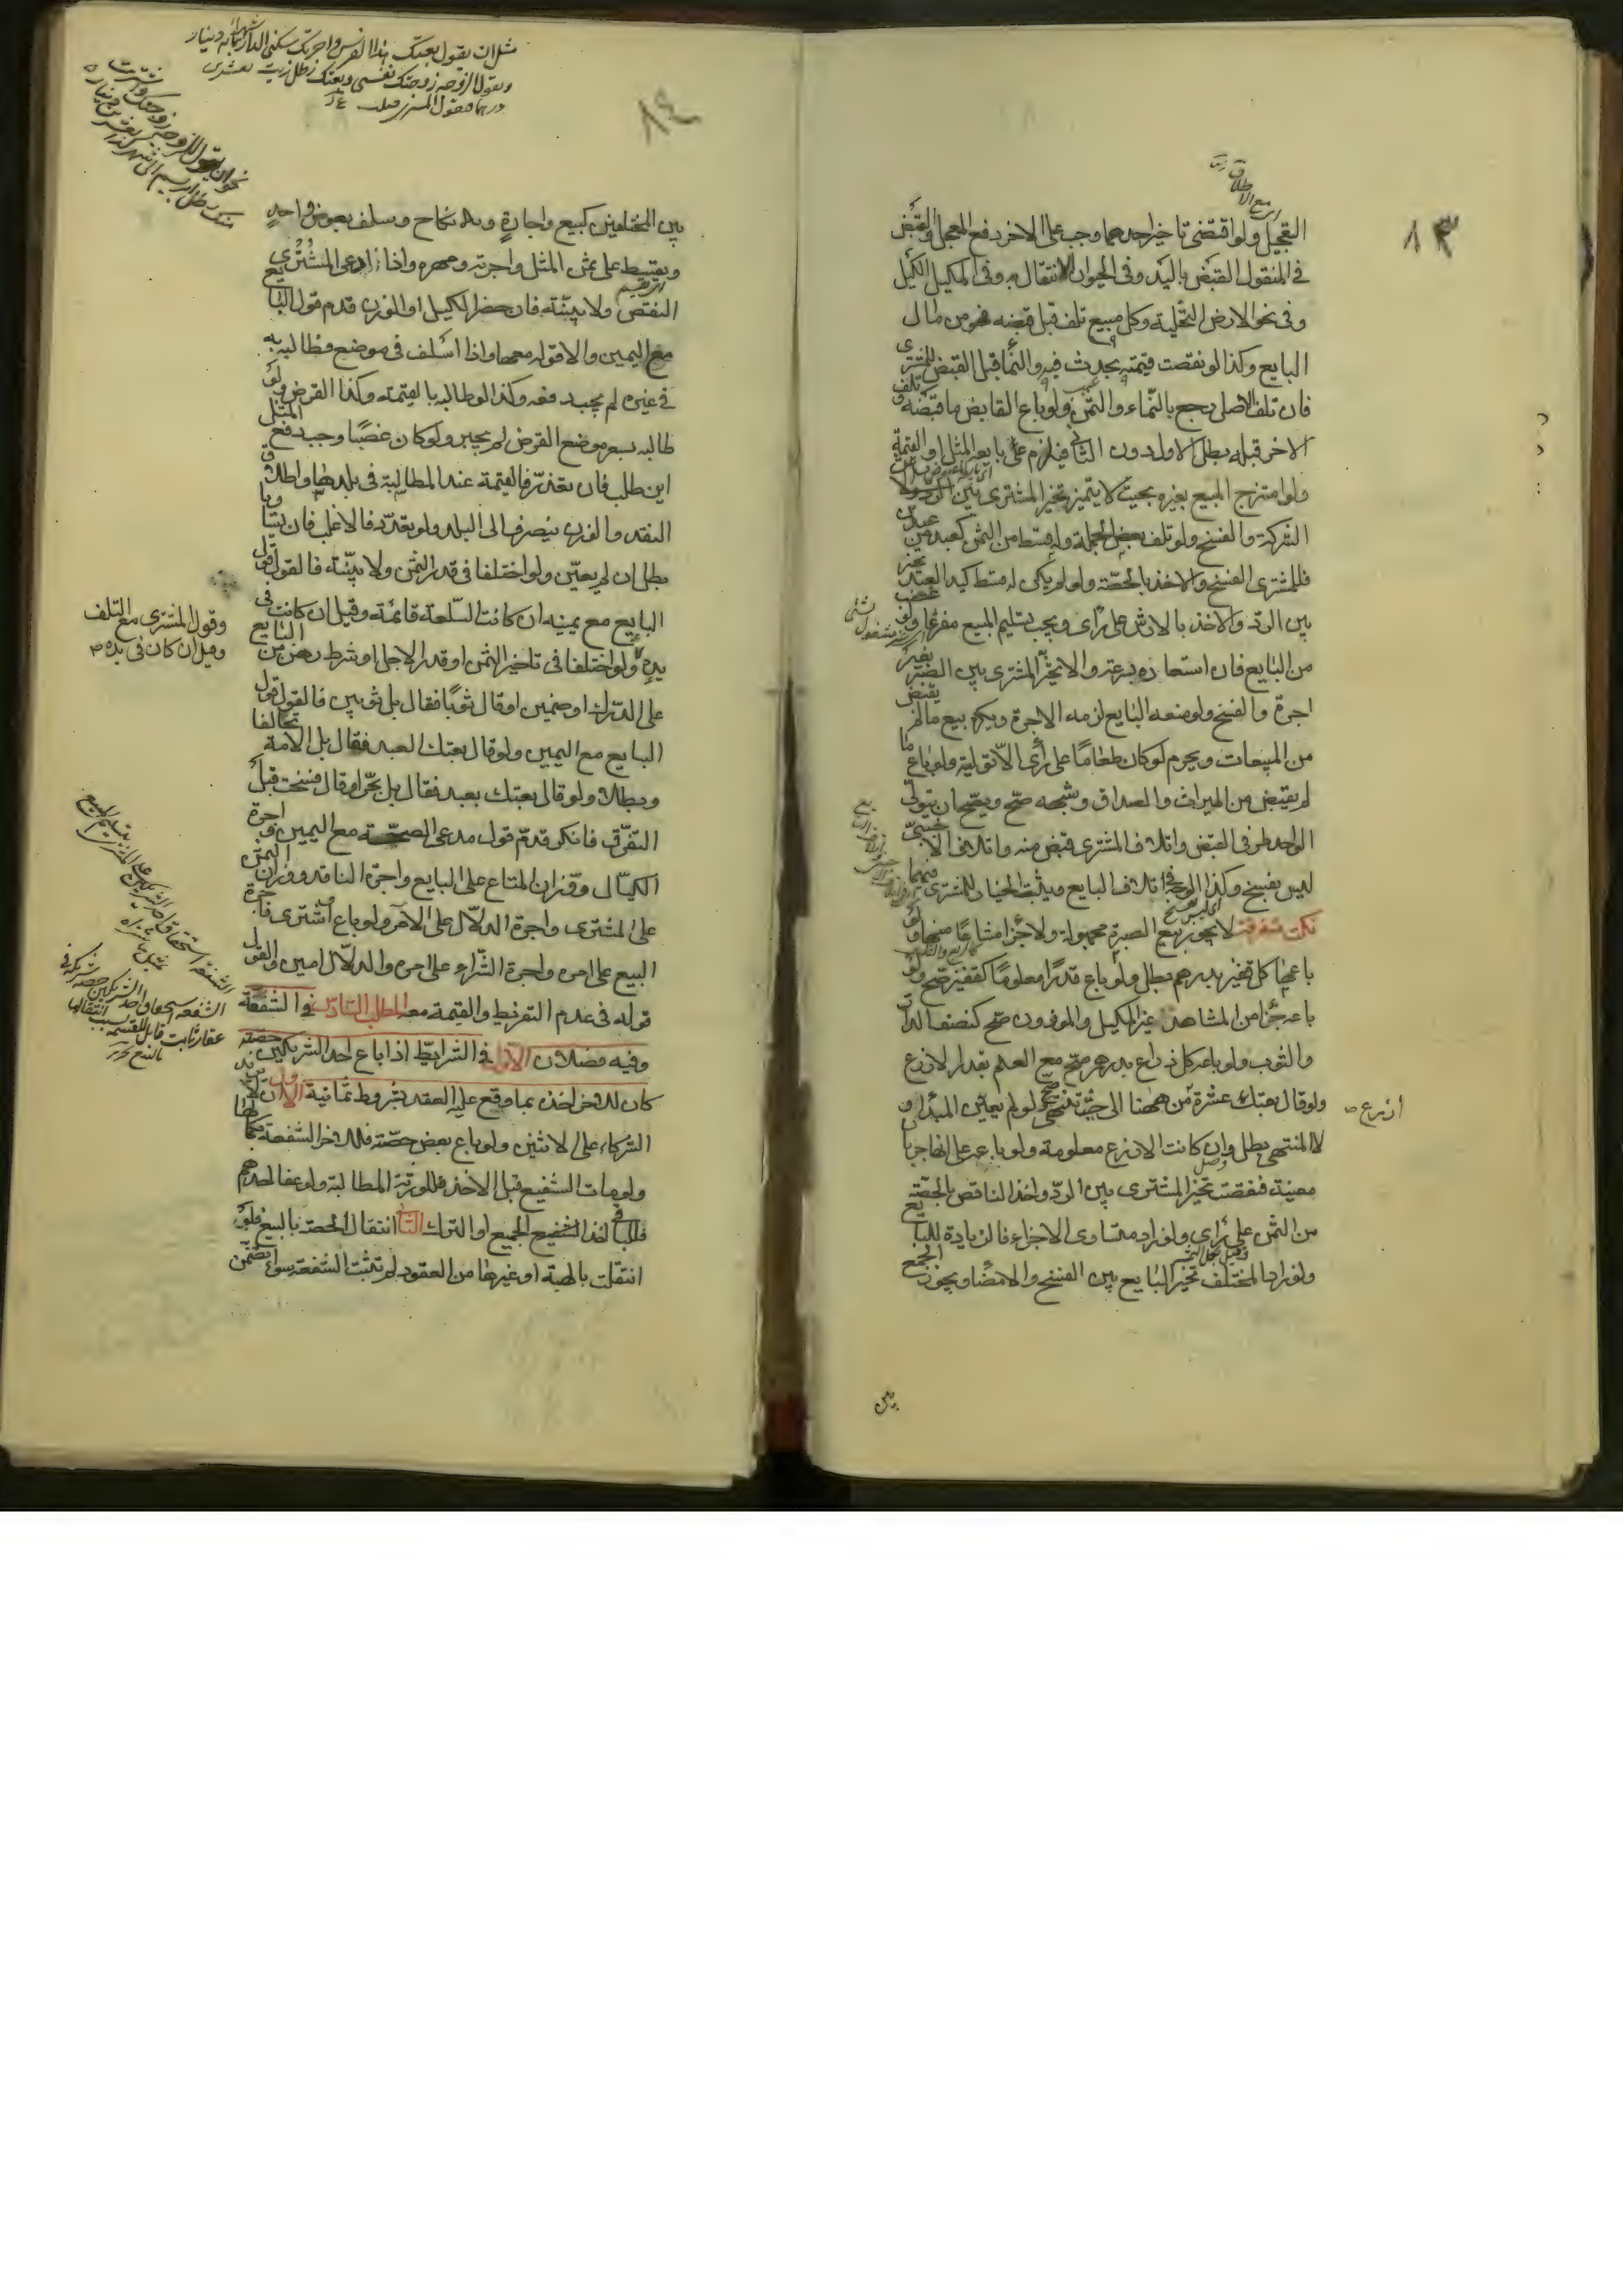 ١٣
التعجيل ولو اقتضى تاخير احدهما وجب على الاخر دفع المعجل والقبض
في المنقول القبض باليد وفي الحيوان الانتقال به وفي المكيل الكيل
وفي نحو الارض التخلية وكل مبيع تلف قبل قبضه فهو من مال
البايع وكذا لو نقصت قيمته بحدث فيه والنما قبل القبض للمشترى
فان تلف الاصل رجع بالنماء والثمن ولو باع القابض ما قبضه وتلف
الاخر قبله بطل الاول دون الثاني فيلزم على بايعه المثل او القيمة
ولو امتزج المبيع بغيره بحيث لا يتميز تخير المشترى بين
الشركة والفسخ ولو تلف بعض الجملة وله قسط من الثمن كعبد من عبدين
فللمشترى الفسخ والاخذ بالحصة ولو لم يكن له قسط كيد العبد تخير
بين الرد والاخذ بالارش على رأى ويجب تسليم المبيع مفرغا ولو غصب
من البايع فان استعاده بسرعة والا تخير المشترى بين الصبر بغير
اجرة والفسخ ولو منعه البايع لزمه الاجرة ويكره بيع ما لم يقبض
من المبيعات ويحرم لو كان طعاما على رأى الا تولية ولو باع ما
لم يقبض من الميراث والصداق وشبهه صح ويصح ان يتولى
الواحد طرفى القبض واتلاف المشترى قبض منه واتلاف الاجنبى
ليس بفسخ وكذا اتلاف البايع ويثبت الخيار للمشترى فيهما
نكت متفرقة لا يجوز بيع الصبرة مجهولة ولا جزا مشاعا منها ولو
باعها كل قفيز بدرهم بطل ولو باع قدرا معلوما كقفيز صح ولو
باعه جزا من المشاهد غير المكيل والموزون صح كنصف الدار
والثوب ولو باعه كل ذراع بدرهم صح مع العلم بقدر الاذرع
ولو قال بعتك عشرة من ههنا الى حيث تنتهى صح ولو لم يعين المبدا و
اذرع صح
لا المنتهى بطل وان كانت الاذرع معلومة ولو باعه على انها جربان
معينة فنقصت تخير المشترى بين الرد واخذ الناقص بالحصة
من الثمن على رأى ولو زاد متساوى الاجزاء فالزيادة للبايع
ولو زاد المختلف تخير البايع بين الفسخ والامضا ويجوز الجمع
بين
١٤
مثل ان يقول بعتك هذا الفرس واجرتك سكنى الدار
بين المختلفين كبيع واجارة وبه نكاح وسلف بعوض واحد
ويقسط على ثمن المثل واجرته ومهره واذا ادعى المشترى
النقص ولا بينة فان حضر الكيل او الوزن قدم قول البايع
مع اليمين والا قوله معها واذا اسلف في موضع فطالبه به
في غيره لم يجب دفعه وكذا لو طالبه بالقيمة وكذا القرض ولو
طالبه بسعر موضع القرض لم يجبر ولو كان غصبا وجب دفع المثل
اين طلب فان تعذر فالقيمة عند المطالبة في بلدها واطلاق
النقد والوزن ينصرف الى البلد ولو تعدد فالاغلب فان تساويا
بطل ان لم يعين ولو اختلفا في قدر الثمن ولا بينة فالقول قول
البايع مع يمينه ان كانت السلعة قائمة وقيل ان كانت في
وقول المشترى مع التلف
وقيل ان كان في يده صح
يده ولو اختلفا في تاخير الثمن او قدر الاجل او شرط رهن من البايع
على الدرك او ضمين او قال ثوبا فقال بل ثوبين فالقول قول
البايع مع اليمين ولو قال بعتك العبد فقال بل الامة تحالفا
وبطلا ولو قال بعتك بعبد فقال بل بحر او قال فسخت قبل
التفرق فانكر قدم قول مدعى الصحة مع اليمين واجرة
الكيال ووزان المتاع على البايع واجرة الناقد ووزان الثمن
على المشترى واجرة الدلال على الامر ولو باع واشترى فاجرة
البيع على امره واجرة الشراء على امره والدلال امين والقول
قوله في عدم التفريط والقيمة معه المطلب السادس في الشفعة
وفيه فصلان الاول في الشرايط اذا باع احد الشريكين حصته
كان للاخر اخذه بما وقع عليه العقد بشروط ثمانية الاول ان لا يزيد
الشركاء على الاثنين ولو باع بعض حصته فللاخر الشفعة بكمالها
ولو مات الشفيع قبل الاخذ فللورثة المطالبة ولو عفا احدهم
فللباقى اخذ الشفيع الجميع او الترك الثانى انتقال الحصة بالبيع فلو
انتقلت بالهبة او غيرها من العقود لم تثبت الشفعة سواء تضمن
الشفعة استحقاق احد الشريكين حصة شريكه في
عقار ثابت قابل للقسمة بسبب انتقالها
بالبيع تحرير